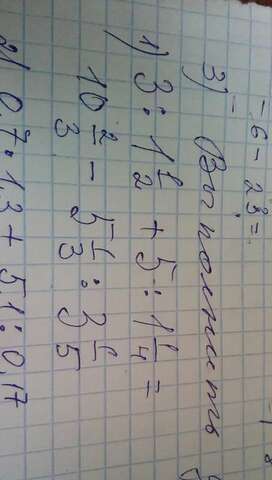 = 6 - 2 3 =
3) Выполнить
1) 3 : 1 1/2 + 5 : 1 1/4 =
10 2/3 - 5 1/3 : 3 1/5
2) 0,7 · 1,3 + 5,1 : 0,17